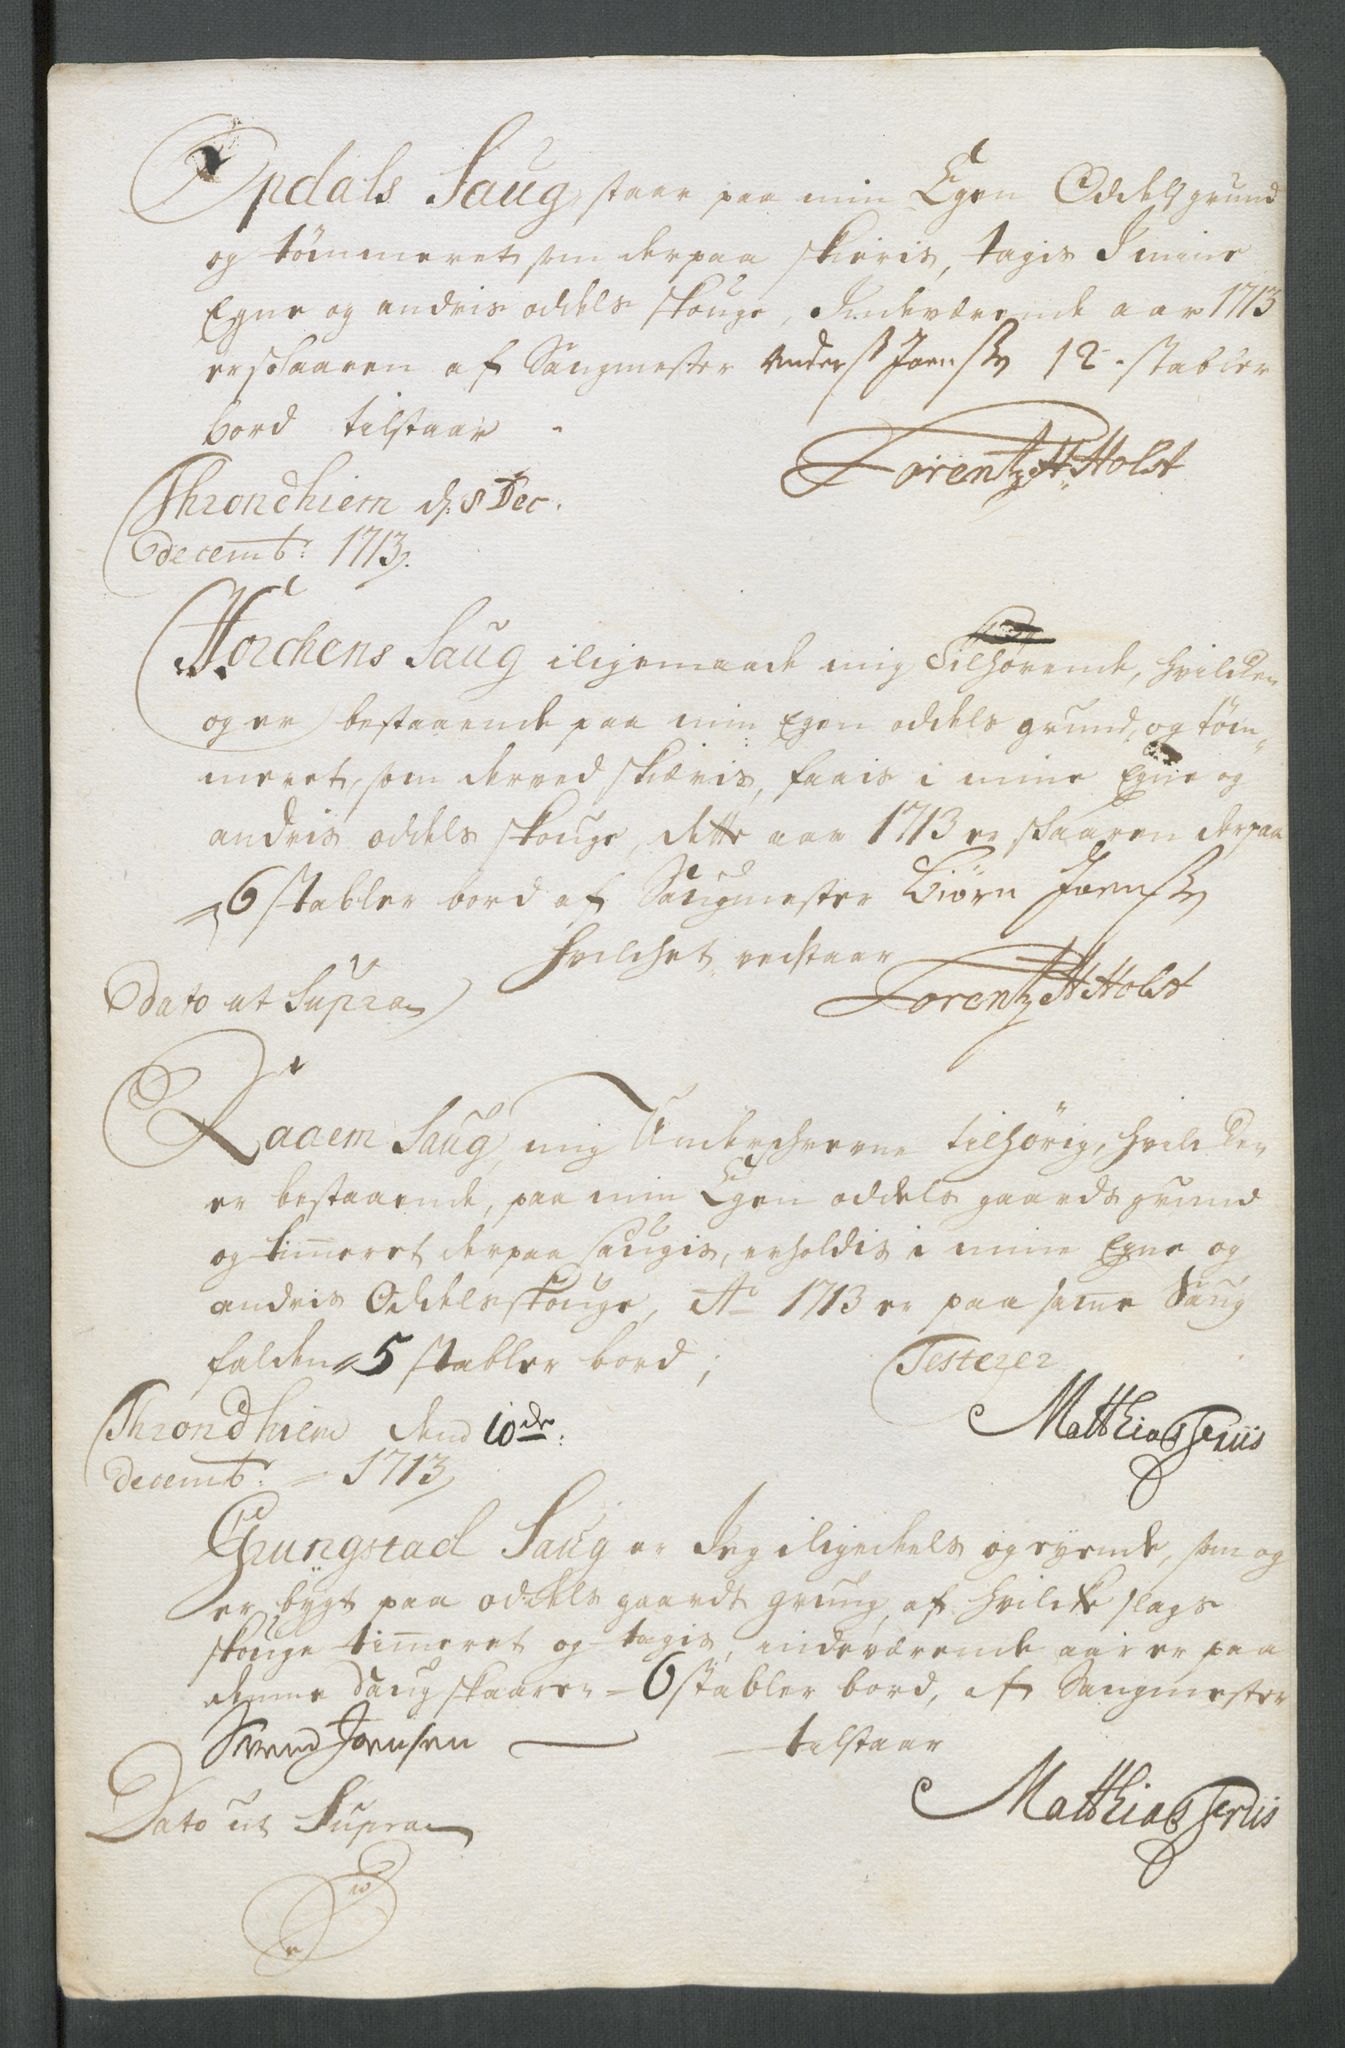 Opdals Saug, staar paa min Egen Oddels grund
og tømmeret som derpaa skieris, tagis I mine
Egne og andris oddels skouge, Indeværende aar 1713
er skaaren af Saugmester Anders Joenss 12 stabler
bord tilstaar
Lorentz H: Holst
Throndhiem d: 8 Dec.
decemb: 1713.
Horchens Saug iligemaade mig Tilhørende, hvilcken
og er bestaaende paa min Egen oddels grund, og tøm„
meret, som derved skæris, faais i mine Egne og
andris oddels skouge, dette aar 1713 er skaaren derpaa
6 stabler bord af Saugmester Biørn Joenss
hvilchet vedstaar
Dato ut Supra
Lorentz H Holst
Raaem Saug, mig Underschrevne tilhørig, hvilcken
er bestaaende, paa min Egen oddels gaards grund
og timeret derpaa saugis, erholdis i mine Egne og
andris Oddels skouge, Ao 1713 er paa same Saug
falden 5 stabler bord;
Testerer
Throndhiem dend 10de:
decemb: 1713
Matthias
Grungstad Saug er Jeg iligedels og eyende, som og
er bygt paa oddels gaardt grung, af hvilcke slags
skouge timeret og tagis, indeværende aar er paa
denne Saug skaaren 6 stabler bord, af Saugmester
Svend Joensen tilstaar
Dato ut Supra
Matthias